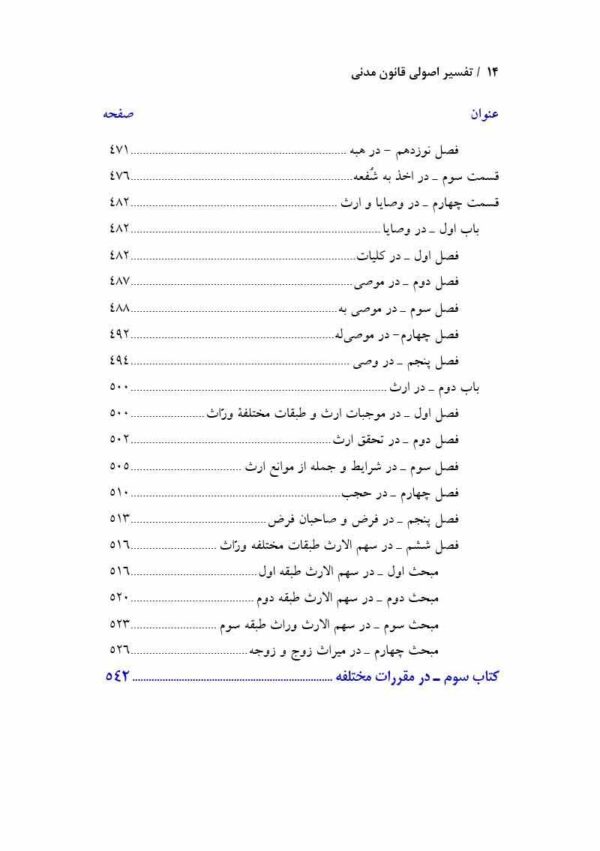 ۱۴ / تفسیر اصولی قانون مدنی
عنوان صفحه
فصل نوزدهم - در هبه ........ ٤٧١
قسمت سوم ـ در اخذ به شُفعه ........ ٤٧٦
قسمت چهارم ـ در وصایا و ارث ........ ٤٨٢
باب اول ـ در وصایا ........ ٤٨٢
فصل اول ـ در کلیات ........ ٤٨٢
فصل دوم ـ در موصی ........ ٤٨٧
فصل سوم ـ در موصی به ........ ٤٨٨
فصل چهارم- در موصی‌له ........ ٤٩٢
فصل پنجم ـ در وصی ........ ٤٩٤
باب دوم ـ در ارث ........ ٥٠٠
فصل اول ـ در موجبات ارث و طبقات مختلفۀ ورّاث ........ ٥٠٠
فصل دوم ـ در تحقق ارث ........ ٥٠٢
فصل سوم ـ در شرایط و جمله از موانع ارث ........ ٥٠٥
فصل چهارم ـ در حجب ........ ٥١٠
فصل پنجم ـ در فرض و صاحبان فرض ........ ٥١٣
فصل ششم ـ در سهم الارث طبقات مختلفه ورّاث ........ ٥١٦
مبحث اول ـ در سهم الارث طبقه اول ........ ٥١٦
مبحث دوم ـ در سهم الارث طبقه دوم ........ ٥٢٠
مبحث سوم ـ در سهم الارث وراث طبقه سوم ........ ٥٢٣
مبحث چهارم ـ در میراث زوج و زوجه ........ ٥٢٦
کتاب سوم ـ در مقررات مختلفه ........ ٥٤٢